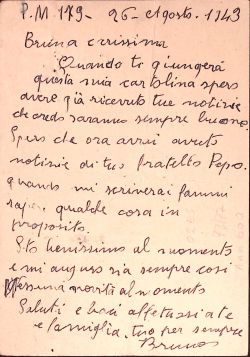 P.M 179 - 26 - Agosto. 1943
Bruna carissima
Quando ti giungerà
questa mia cartolina spero
avere già ricevuto tue notizie
che credo saranno sempre buone
Spero che ora avrai avuto
notizie di tuo fratello Pepo.
quando mi scriverai fammi
sapere qualche cosa in
proposito.
Sto benissimo al momento
e mi auguro sia sempre così
nessuna novità al momento
Saluti e baci affettuosi a te
e famiglia, tuo per sempre
Bruno